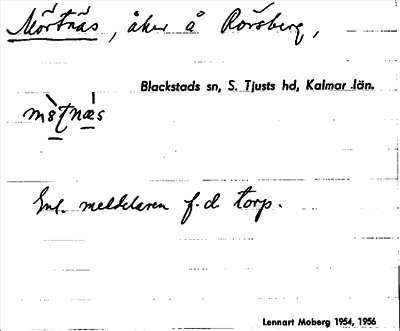 Mörtnäs, åker å Rörsberg,
Blackstads sn, S. Tjusts hd, Kalmar län.
Enl. meddelaren f.d. torp.
Lennart Moberg 1954, 1956